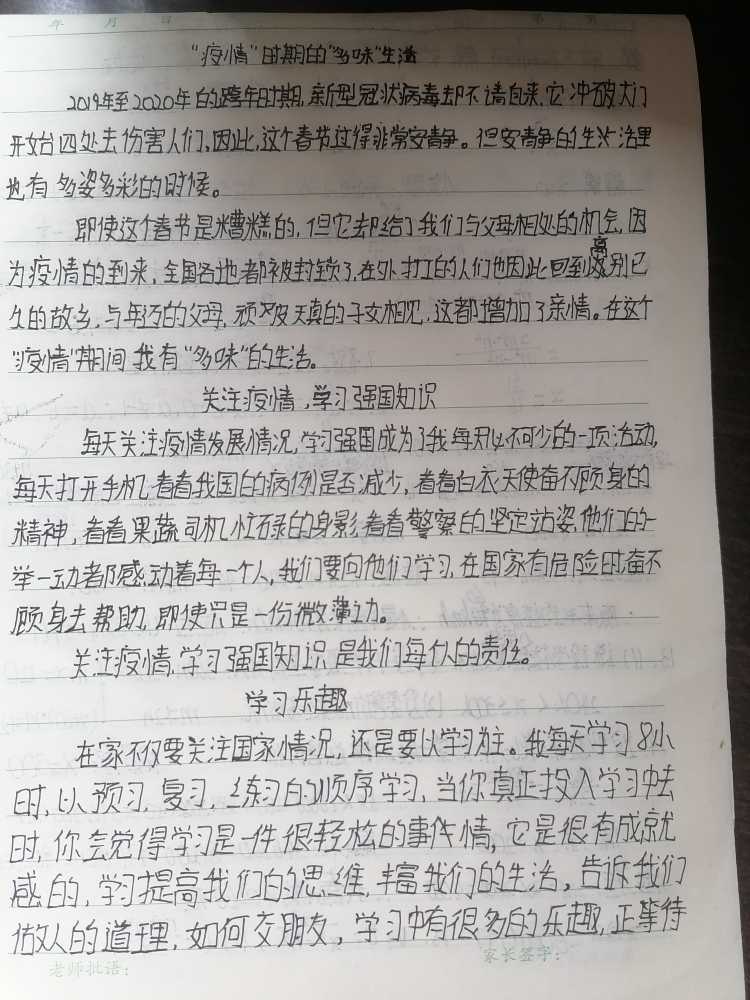 年 月 日 第 页
“疫情”时期的“多味”生活
2019年至2020年的跨年时期,新型冠状病毒却不请自来,它冲破大门
开始四处去伤害人们、因此,这个春节过得非常安静。但安静的生活里
也有多姿多彩的时候。
即使这个春节是糟糕的,但它却给了我们与父母相处的机会,因
为疫情的到来,全国各地都被封锁了,在外打工的人们也因此回到离别已
久的故乡,与年迈的父母,顽皮天真的子女相见,这都增加了亲情。在这个
“疫情”期间我有“多味”的生活。
关注疫情,学习强国知识
每天关注疫情发展情况,学习强国成为了我每天必不可少的一项活动,
每天打开手机看看我国的病例是否减少,看看白衣天使奋不顾身的
精神,看看果蔬司机忙碌的身影,看看警察的坚定站姿,他们的一
举一动都感动着每一个人,我们要向他们学习,在国家有危险时奋不
顾身去帮助,即使只是一份微薄之力。
关注疫情,学习强国知识是我们每个人的责任。
学习乐趣
在家不仅要关注国家情况,还是要以学习为主。我每天学习8小
时,以预习,复习,练习的顺序学习,当你真正投入学习中去
时,你会觉得学习是一件很轻松的事件情,它是很有成就
感的,学习提高我们的思维,丰富我们的生活,告诉我们
做人的道理,如何交朋友,学习中有很多的乐趣,正等待
老师批语: 家长签字: